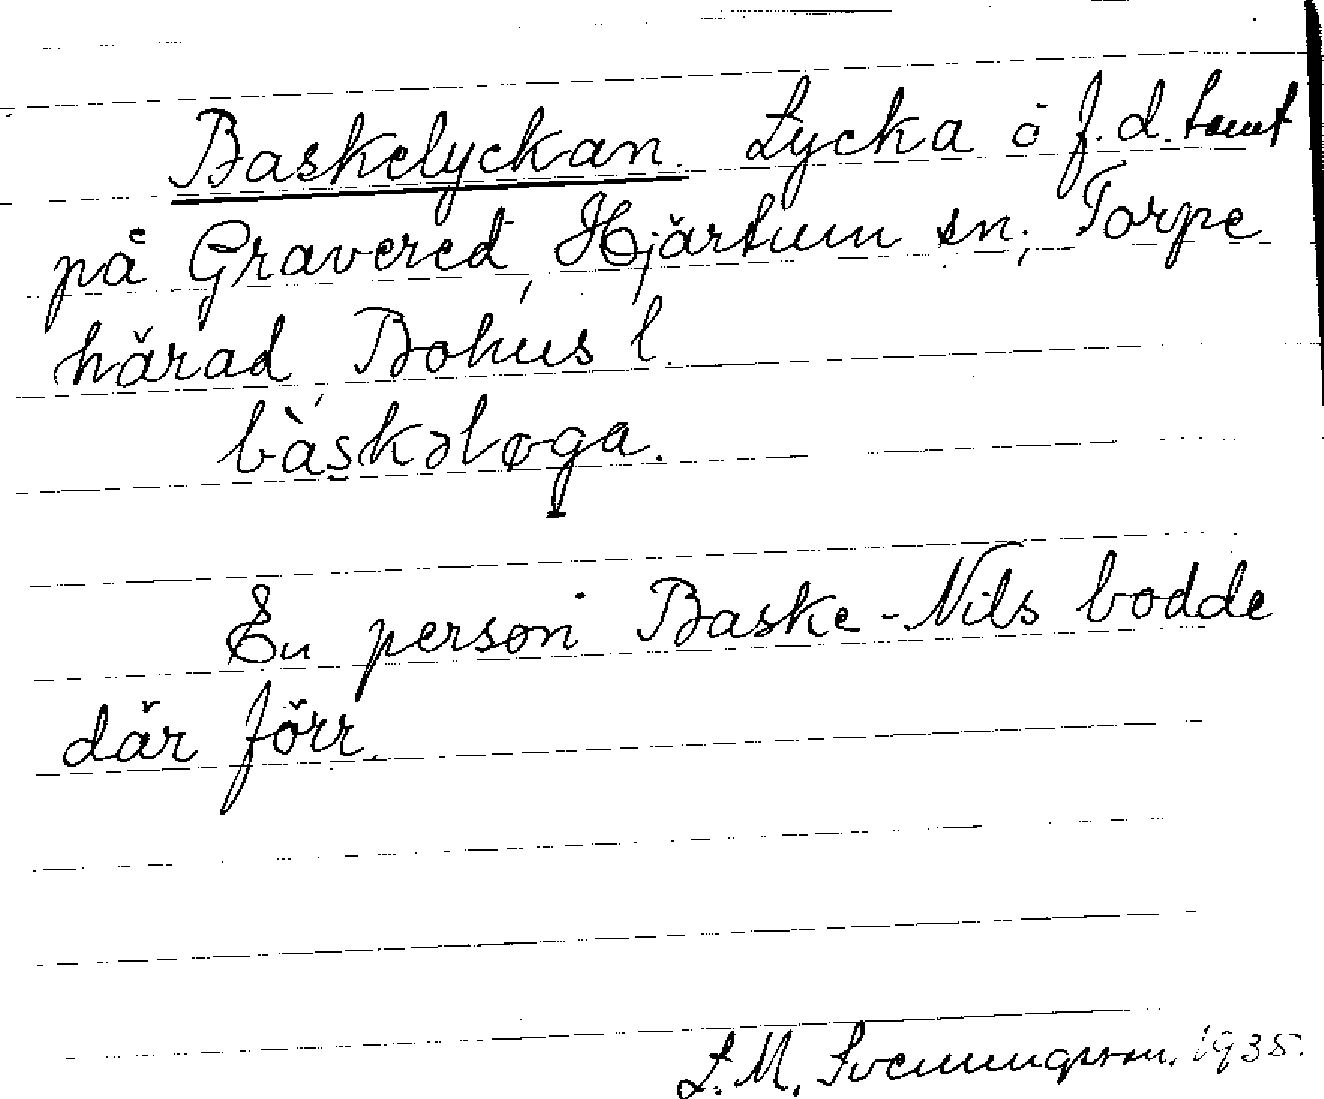 Baskelyckan. Lycka å f.d. tomt
på Gravered, Hjärtum sn; Torpe
härad, Bohus l.
bàskəløga.
En person Baske-Nils bodde
där förr.
L.M. Svenungsson. 1935.